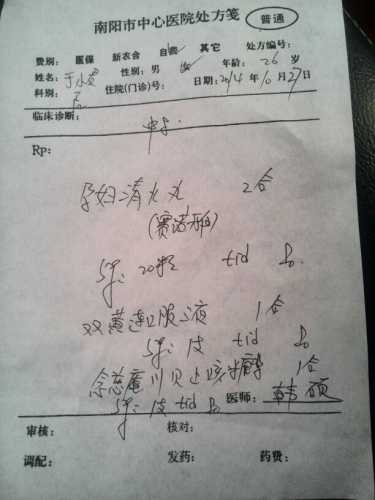 南阳市中心医院处方笺 普通
费别: 医保 新农合 自费✓ 其它 处方编号:
姓名: 性别: 男 女 年龄: 26 岁
科别: 住院(门诊)号: 日期: 2014 年 10 月 27 日
临床诊断:
Rp:
孕妇清火丸 2合
(赛诺)
Sig: 20粒 tid po
双黄连口服液 1合
Sig: tid po
念慈庵川贝 1合
Sig: tid po 医师: 韩硕
审核: 核对:
调配: 发药: 药费: